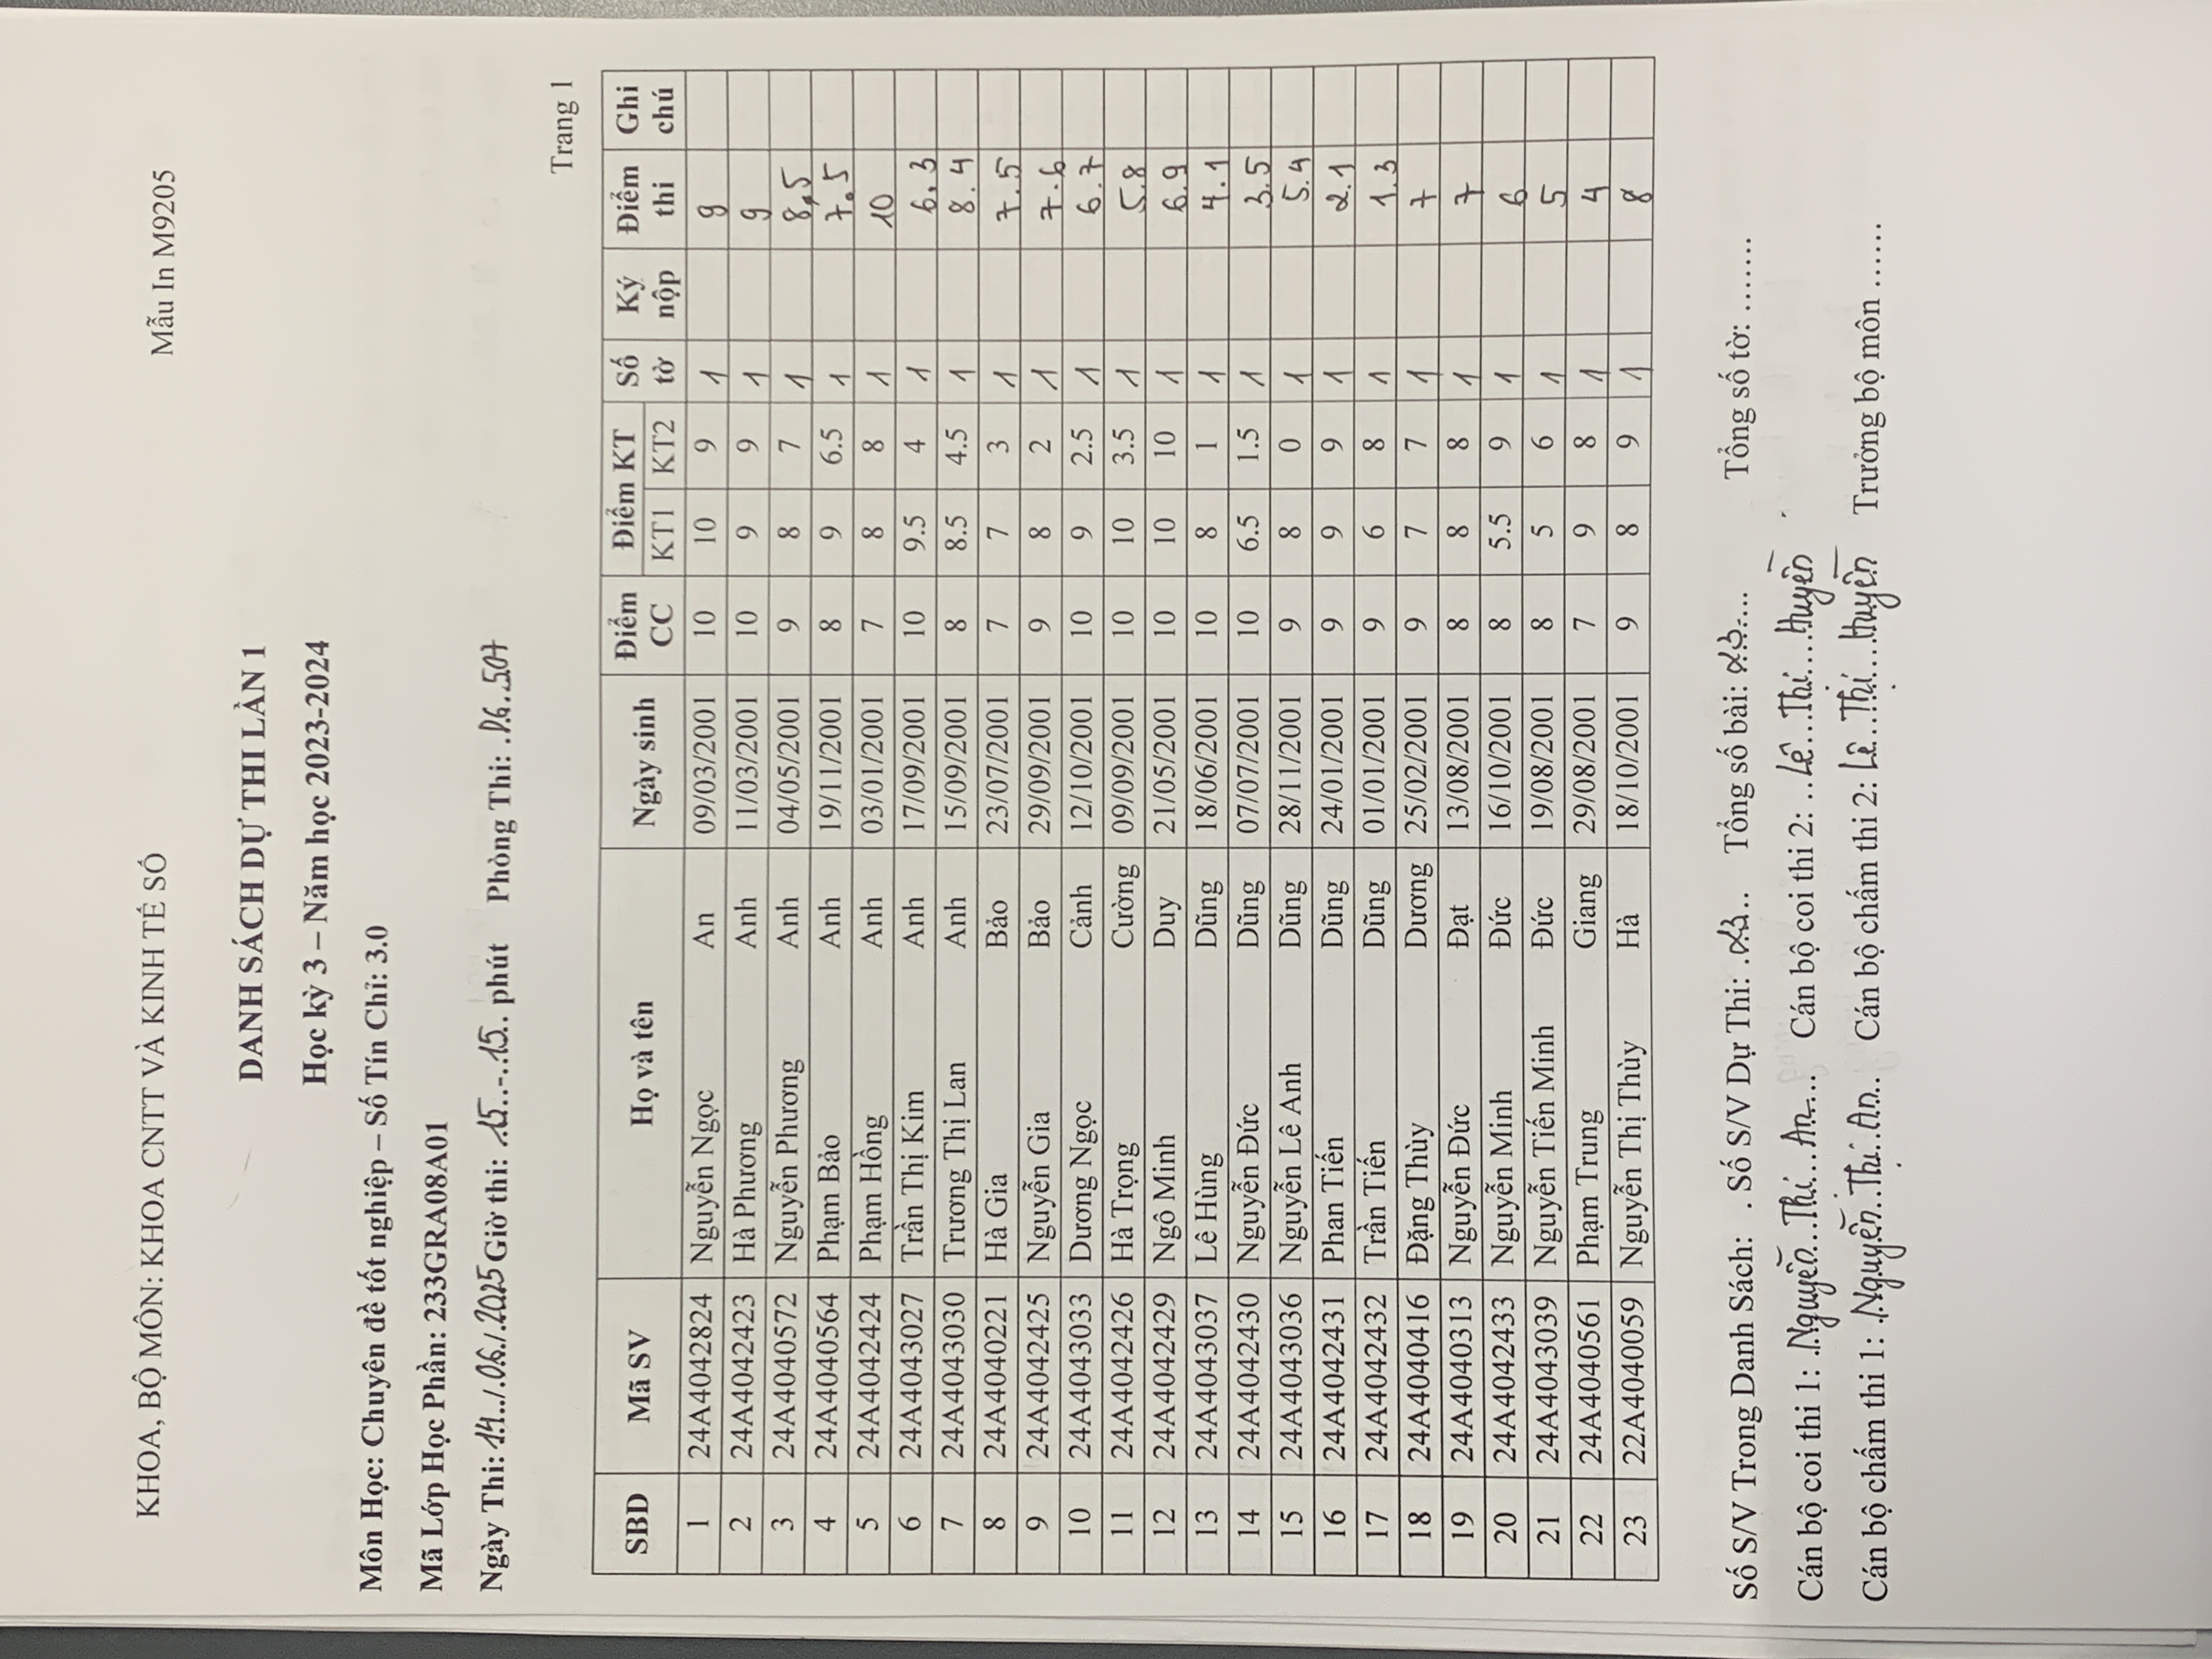 KHOA, BỘ MÔN: KHOA CNTT VÀ KINH TẾ SỐ
Mẫu In M9205
DANH SÁCH DỰ THI LẦN 1
Học kỳ 3 – Năm học 2023-2024
Môn Học: Chuyên đề tốt nghiệp – Số Tín Chỉ: 3.0
Mã Lớp Học Phần: 233GRA08A01
Ngày Thi: 14../.06./.2025 Giờ thi: .15..-..15.. phút Phòng Thi: .D6..507
Trang 1
SBD Mã SV Họ và tên Ngày sinh Điểm CC Điểm KT KT1 KT2 Số tờ Ký nộp Điểm thi Ghi chú
1 24A4042824 Nguyễn Ngọc An 09/03/2001 10 10 9 1 9
2 24A4042423 Hà Phương Anh 11/03/2001 10 9 9 1 9
3 24A4040572 Nguyễn Phương Anh 04/05/2001 9 8 7 1 8,5
4 24A4040564 Phạm Bảo Anh 19/11/2001 8 9 6.5 1 7.5
5 24A4042424 Phạm Hồng Anh 03/01/2001 7 8 8 1 10
6 24A4043027 Trần Thị Kim Anh 17/09/2001 10 9.5 4 1 6,3
7 24A4043030 Trương Thị Lan Anh 15/09/2001 8 8.5 4.5 1 8.4
8 24A4040221 Hà Gia Bảo 23/07/2001 7 7 3 1 7.5
9 24A4042425 Nguyễn Gia Bảo 29/09/2001 9 8 2 1 7.6
10 24A4043033 Dương Ngọc Cảnh 12/10/2001 10 9 2.5 1 6.7
11 24A4042426 Hà Trọng Cường 09/09/2001 10 10 3.5 1 5.8
12 24A4042429 Ngô Minh Duy 21/05/2001 10 10 10 1 6.9
13 24A4043037 Lê Hùng Dũng 18/06/2001 10 8 1 1 4.1
14 24A4042430 Nguyễn Đức Dũng 07/07/2001 10 6.5 1.5 1 3.5
15 24A4043036 Nguyễn Lê Anh Dũng 28/11/2001 9 8 0 1 5.4
16 24A4042431 Phan Tiến Dũng 24/01/2001 9 9 9 1 2.1
17 24A4042432 Trần Tiến Dũng 01/01/2001 9 6 8 1 1.3
18 24A4040416 Đặng Thùy Dương 25/02/2001 9 7 7 1 7
19 24A4040313 Nguyễn Đức Đạt 13/08/2001 8 8 8 1 7
20 24A4042433 Nguyễn Minh Đức 16/10/2001 8 5.5 9 1 6
21 24A4043039 Nguyễn Tiến Minh Đức 19/08/2001 8 5 6 1 5
22 24A4040561 Phạm Trung Giang 29/08/2001 7 9 8 1 4
23 22A4040059 Nguyễn Thị Thùy Hà 18/10/2001 9 8 9 1 8
Số S/V Trong Danh Sách: . Số S/V Dự Thi: .23.. Tổng số bài: 23.... Tổng số tờ: .......
Cán bộ coi thi 1: .Nguyễn...Thị...An.... Cán bộ coi thi 2: ..Lê...Thị....Huyền
Cán bộ chấm thi 1: .Nguyễn..Thị..An.. Cán bộ chấm thi 2: Lê..Thị....Huyền Trưởng bộ môn ......